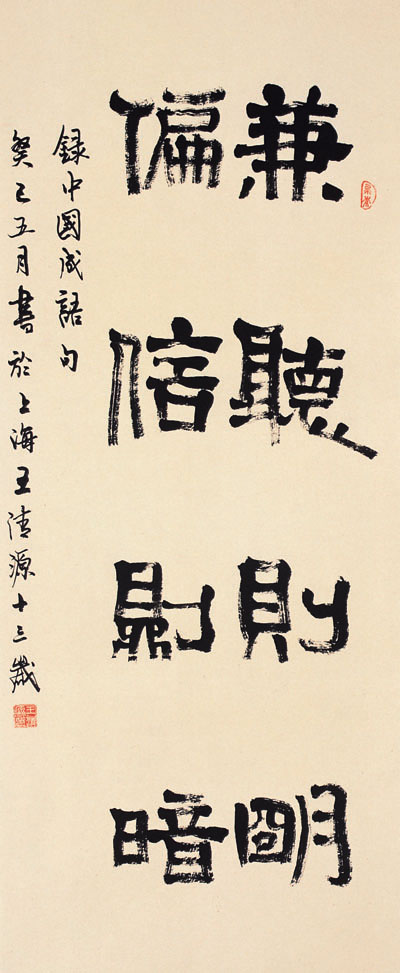 兼聽則朙
偏信則暗
録中國成語句
癸巳五月書於上海王清源十三歲